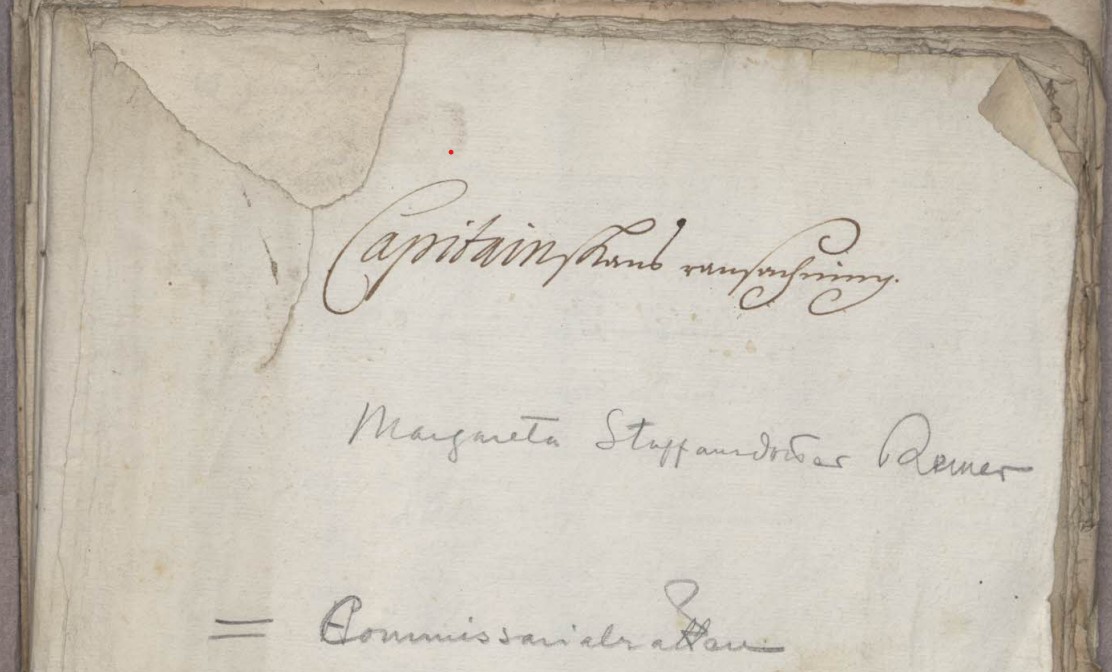 Capitainskans ransachning.
Margareta Staffansdotter Remer
= Commissorialrätten